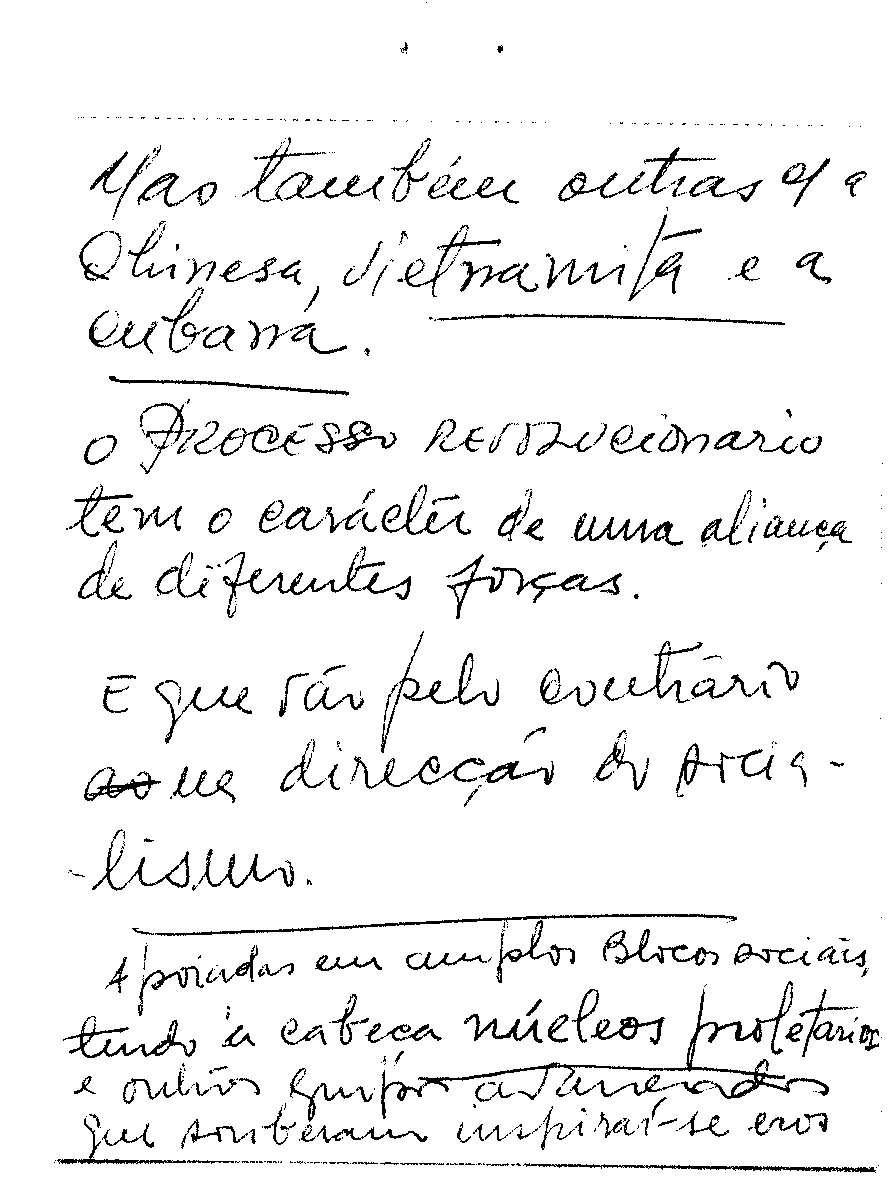 Mas também outras c/ a
Chinesa, vietnamita e a
cubana.
O PROCESSO REVOLUCIONARIO
tem o carácter de uma aliança
de diferentes forças.
E que vão pelo contrário
ao na direcção do socia-
-lismo.
Apoiadas em amplos Blocos sociais,
tendo à cabeça núcleos proletários
e outros grupos avançados
que souberam inspirar-se